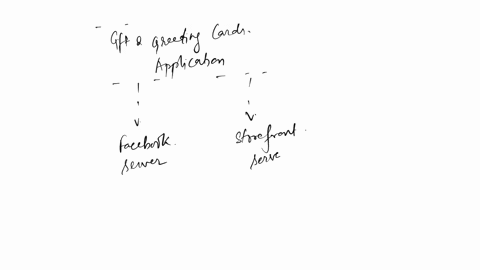 Gft & Greeting Cards.
Application
Facebook
server
Storefront
serve